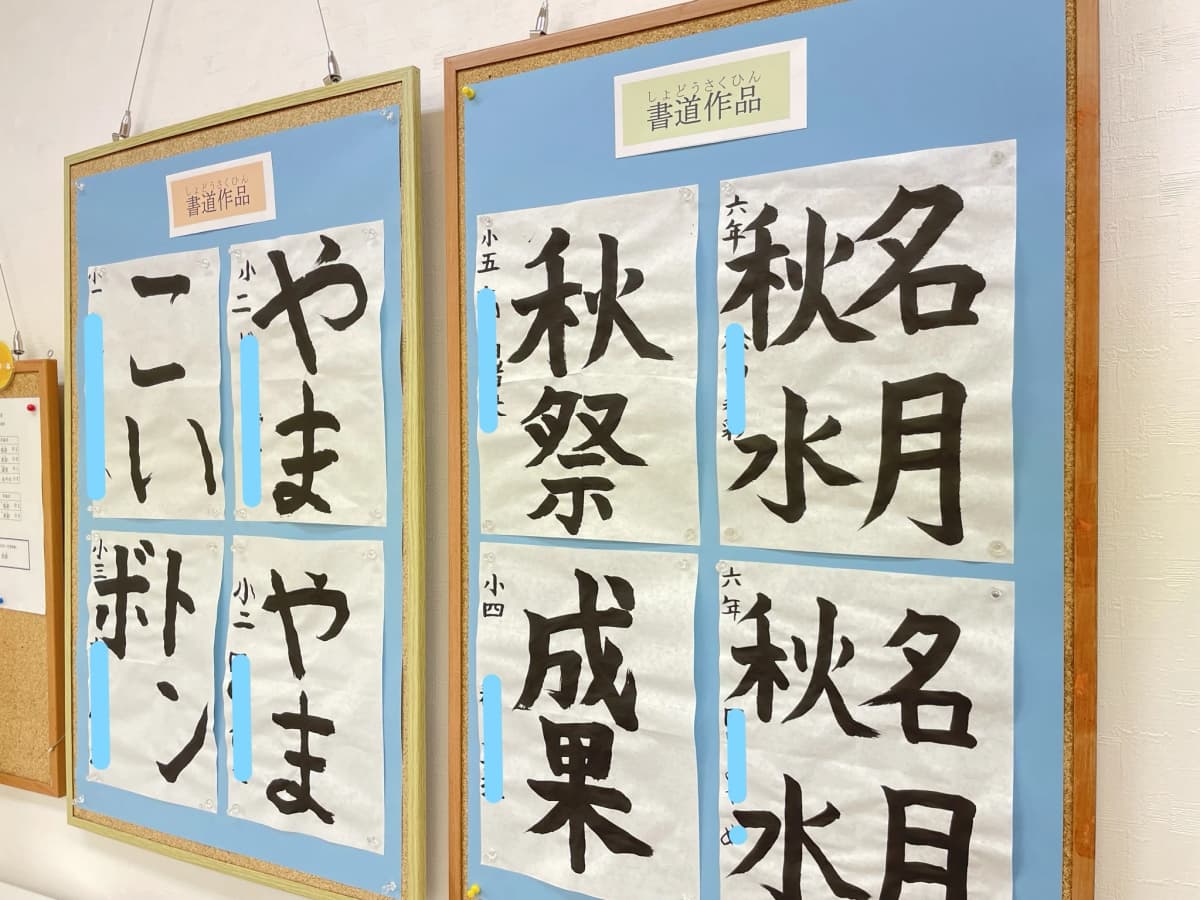 しょどうさくひん
書道作品
やま
小二
こい
小一
やま
小二
トン
ボ
小三
しょどうさくひん
書道作品
名月
秋水
六年
秋祭
小五
名月
秋水
六年
成果
小四